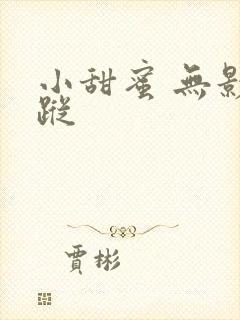 小甜蜜 無影
蹤
賈彬